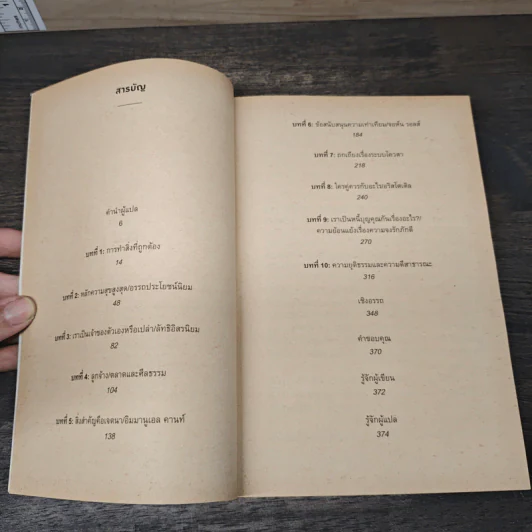 สารบัญ
คำนำผู้แปล
6
บทที่ 1: การทำสิ่งที่ถูกต้อง
14
บทที่ 2: หลักความสุขสูงสุด/อรรถประโยชน์นิยม
48
บทที่ 3: เราเป็นเจ้าของตัวเองหรือเปล่า/ลัทธิอิสรนิยม
82
บทที่ 4: ลูกจ้าง/ตลาดและศีลธรรม
104
บทที่ 5: สิ่งสำคัญคือเจตนา/อิมมานูเอล คานท์
138
บทที่ 6: ข้อสนับสนุนความเท่าเทียม/จอห์น รอลส์
184
บทที่ 7: ถกเถียงเรื่องระบบโควตา
218
บทที่ 8: ใครคู่ควรกับอะไร/อริสโตเติล
240
บทที่ 9: เราเป็นหนี้บุญคุณกันเรื่องอะไร?/
ความย้อนแย้งเรื่องความจงรักภักดี
270
บทที่ 10: ความยุติธรรมและความดีสาธารณะ
316
เชิงอรรถ
348
คำขอบคุณ
370
รู้จักผู้เขียน
372
รู้จักผู้แปล
374